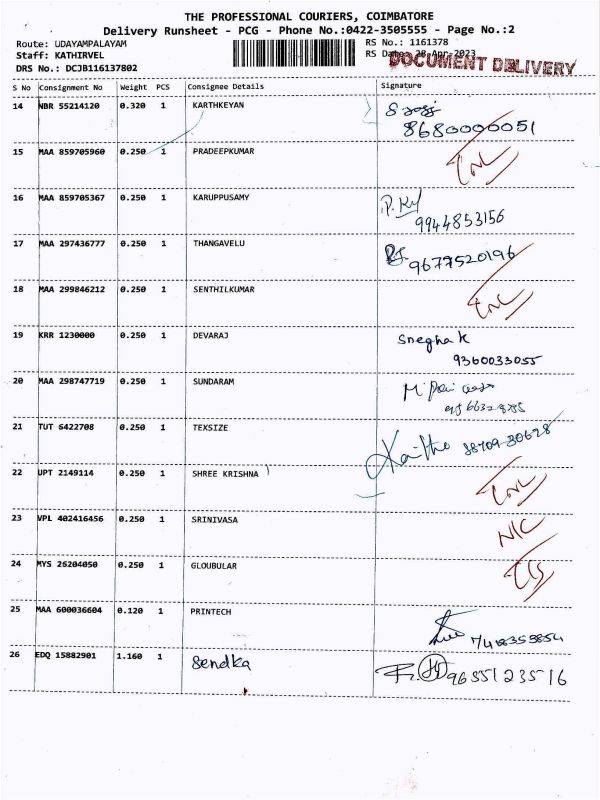 THE PROFESSIONAL COURIERS, COIMBATORE
Delivery Runsheet - PCG - Phone No.:0422-3505555 - Page No.:2
Route: UDAYAMPALAYAM RS No.: 1161378
Staff: KATHIRVEL RS Date: 28 Apr-2023
DOCUMENT DELIVERY
DRS No.: DCJB116137802
S No Consignment No Weight PCS Consignee Details Signature
14 NBR 55214120 0.320 1 KARTHKEYAN
8680000051
15 MAA 859705960 0.250 1 PRADEEPKUMAR
16 MAA 859705367 0.250 1 KARUPPUSAMY
9944853156
17 MAA 297436777 0.250 1 THANGAVELU
9677520196
18 MAA 299846212 0.250 1 SENTHILKUMAR
19 KRR 1230000 0.250 1 DEVARAJ Snegha k
9360033055
20 MAA 298747719 0.250 1 SUNDARAM
21 TUT 6422708 0.250 1 TEXSIZE 88709-30628
22 UPT 2149114 0.250 1 SHREE KRISHNA
23 VPL 402416456 0.250 1 SRINIVASA
24 MYS 26204050 0.250 1 GLOUBULAR
25 MAA 600036604 0.120 1 PRINTECH
26 EDQ 15882901 1.160 1 Sendka 9655123516